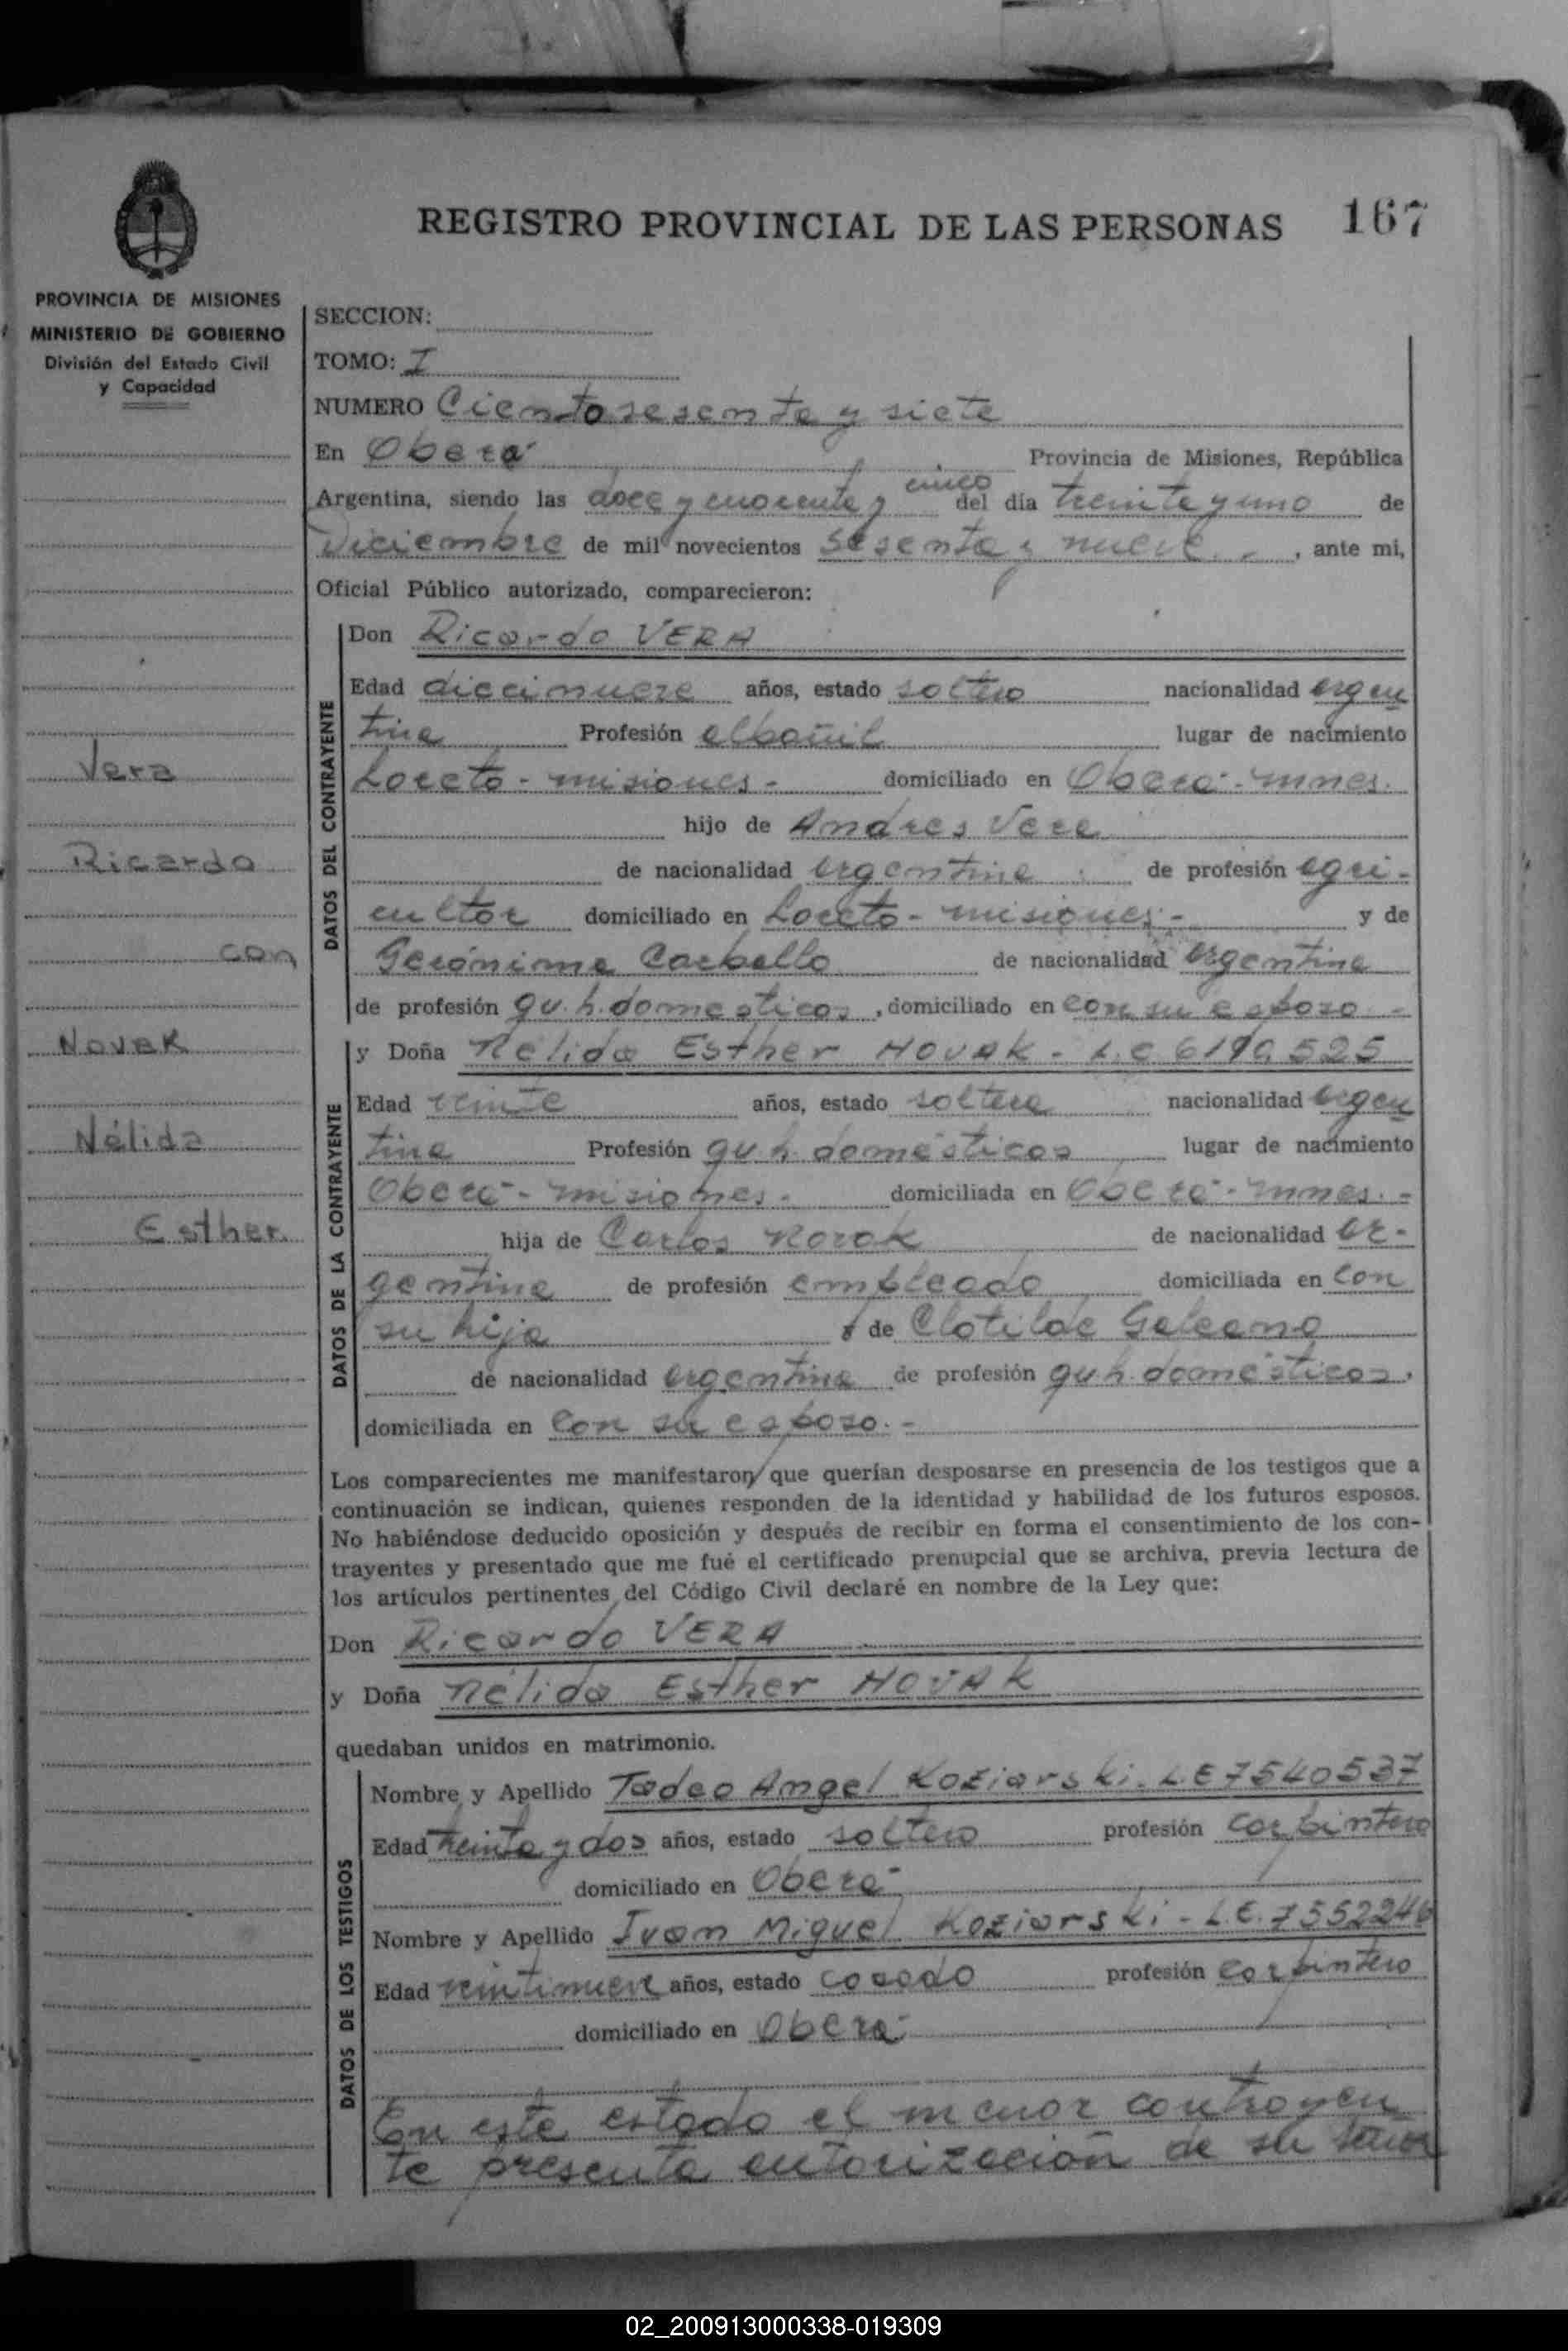 REGISTRO PROVINCIAL DE LAS PERSONAS 167
PROVINCIA DE MISIONES
MINISTERIO DE GOBIERNO
División del Estado Civil
y Capacidad
Vera
Ricardo
con
Novak
Nélida
Esther
SECCION:
TOMO: I
NUMERO Ciento sesenta y siete
En Oberá Provincia de Misiones, República
Argentina, siendo las doce y cuarenta y cinco del día treinta y uno de
Diciembre de mil novecientos sesenta y nueve , ante mi,
Oficial Público autorizado, comparecieron:
DATOS DEL CONTRAYENTE
Don Ricardo VERA
Edad diecinueve años, estado soltero nacionalidad argen
tina Profesión albañil lugar de nacimiento
Loreto - misiones - domiciliado en Oberá - mnes.
hijo de Andres Vera
de nacionalidad argentina de profesión agri-
cultor domiciliado en Loreto - misiones - y de
Gerónima Carballo de nacionalidad argentina
de profesión qu. h. domesticos , domiciliado en con su esposo -
DATOS DE LA CONTRAYENTE
y Doña Nélida Esther NOVAK - L.C 6190525
Edad veinte años, estado soltera nacionalidad argen
tina Profesión qu. h. domésticos lugar de nacimiento
Oberá - misiones - domiciliada en Oberá - mnes. -
hija de Carlos Novak de nacionalidad ar-
gentina de profesión empleado domiciliada en con
su hija y de Clotilde Galeano
de nacionalidad argentina de profesión qu h. domésticos,
domiciliada en con su esposo. -
Los comparecientes me manifestaron que querían desposarse en presencia de los testigos que a
continuación se indican, quienes responden de la identidad y habilidad de los futuros esposos.
No habiéndose deducido oposición y después de recibir en forma el consentimiento de los con-
trayentes y presentado que me fué el certificado prenupcial que se archiva, previa lectura de
los artículos pertinentes del Código Civil declaré en nombre de la Ley que:
Don Ricardo VERA
y Doña Nélida Esther NOVAK
quedaban unidos en matrimonio.
DATOS DE LOS TESTIGOS
Nombre y Apellido Tadeo Angel Koziarski. L.E 7540537
Edad treinta y dos años, estado soltero profesión carpintero
domiciliado en Oberá
Nombre y Apellido Ivan Miguel Koziarski - L.E. 7552246
Edad veintinueve años, estado casado profesión carpintero
domiciliado en Oberá
En este estado el menor contrayen
te presenta autorización de su señor
02_200913000338-019309